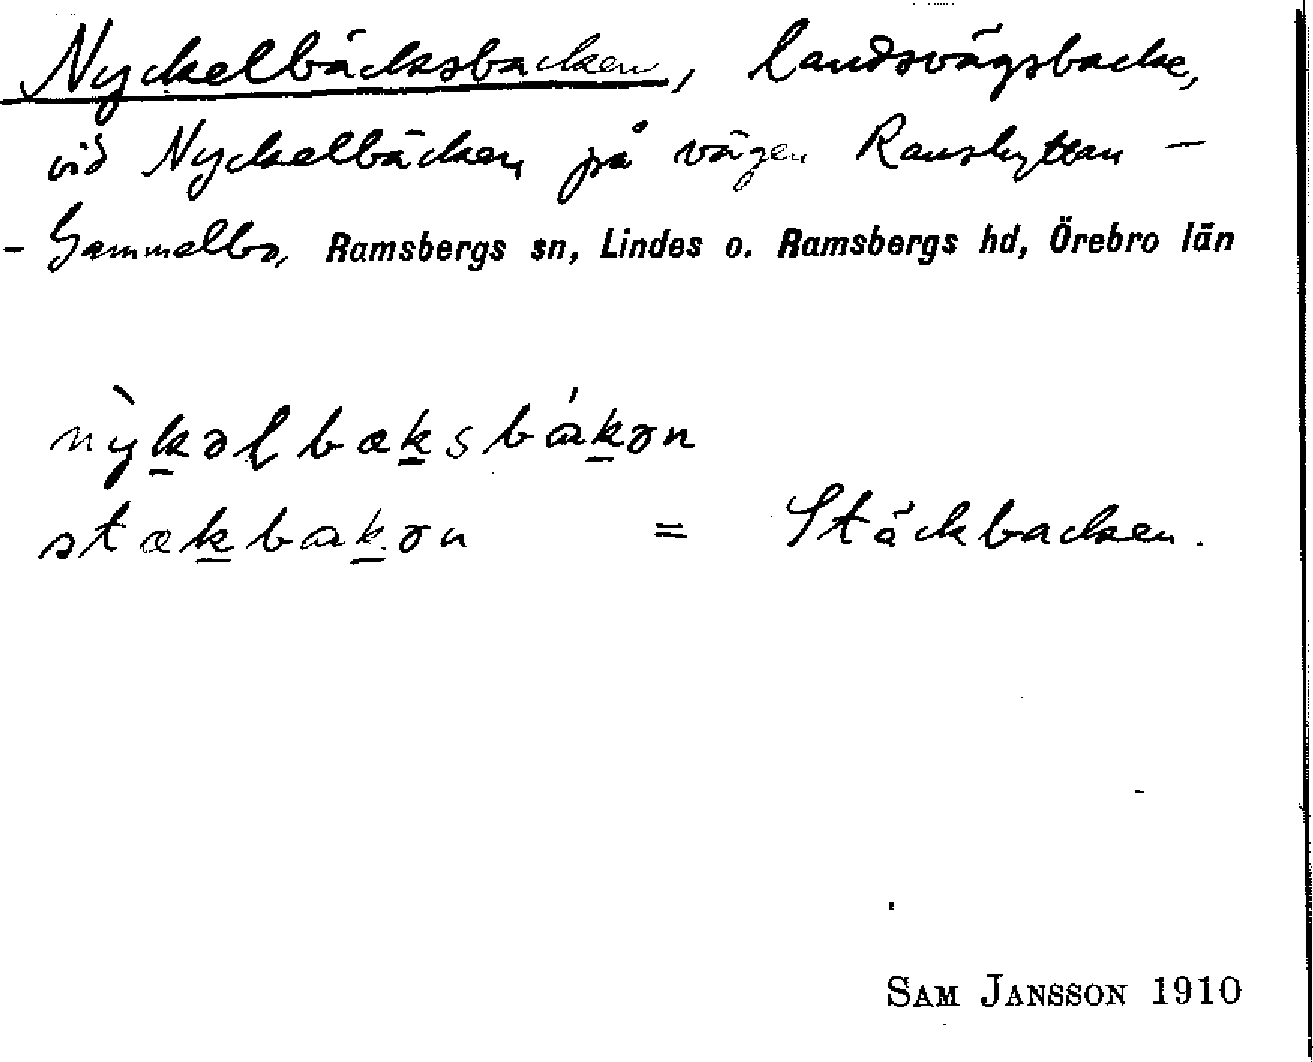 Nyckelbäcksbacken, landsvägsbacke,
vid Nyckelbäcken på vägen Ramshyttan –
– Gammelbo, Ramsbergs sn, Lindes o. Ramsbergs hd, Örebro län
nỳk̲əlbæk̲sbák̲ən
stæk̲bak̲ən = Stäckbacken.
SAM JANSSON 1910